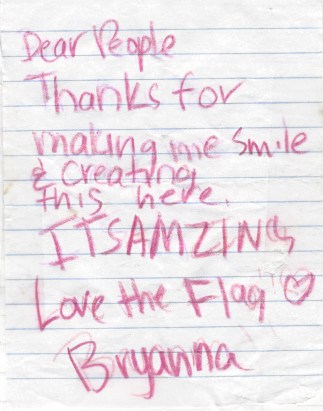 Dear People
Thanks for
making me smile
& creating
this here.
ITSAMZING
Love the Flag ♡
Bryanna